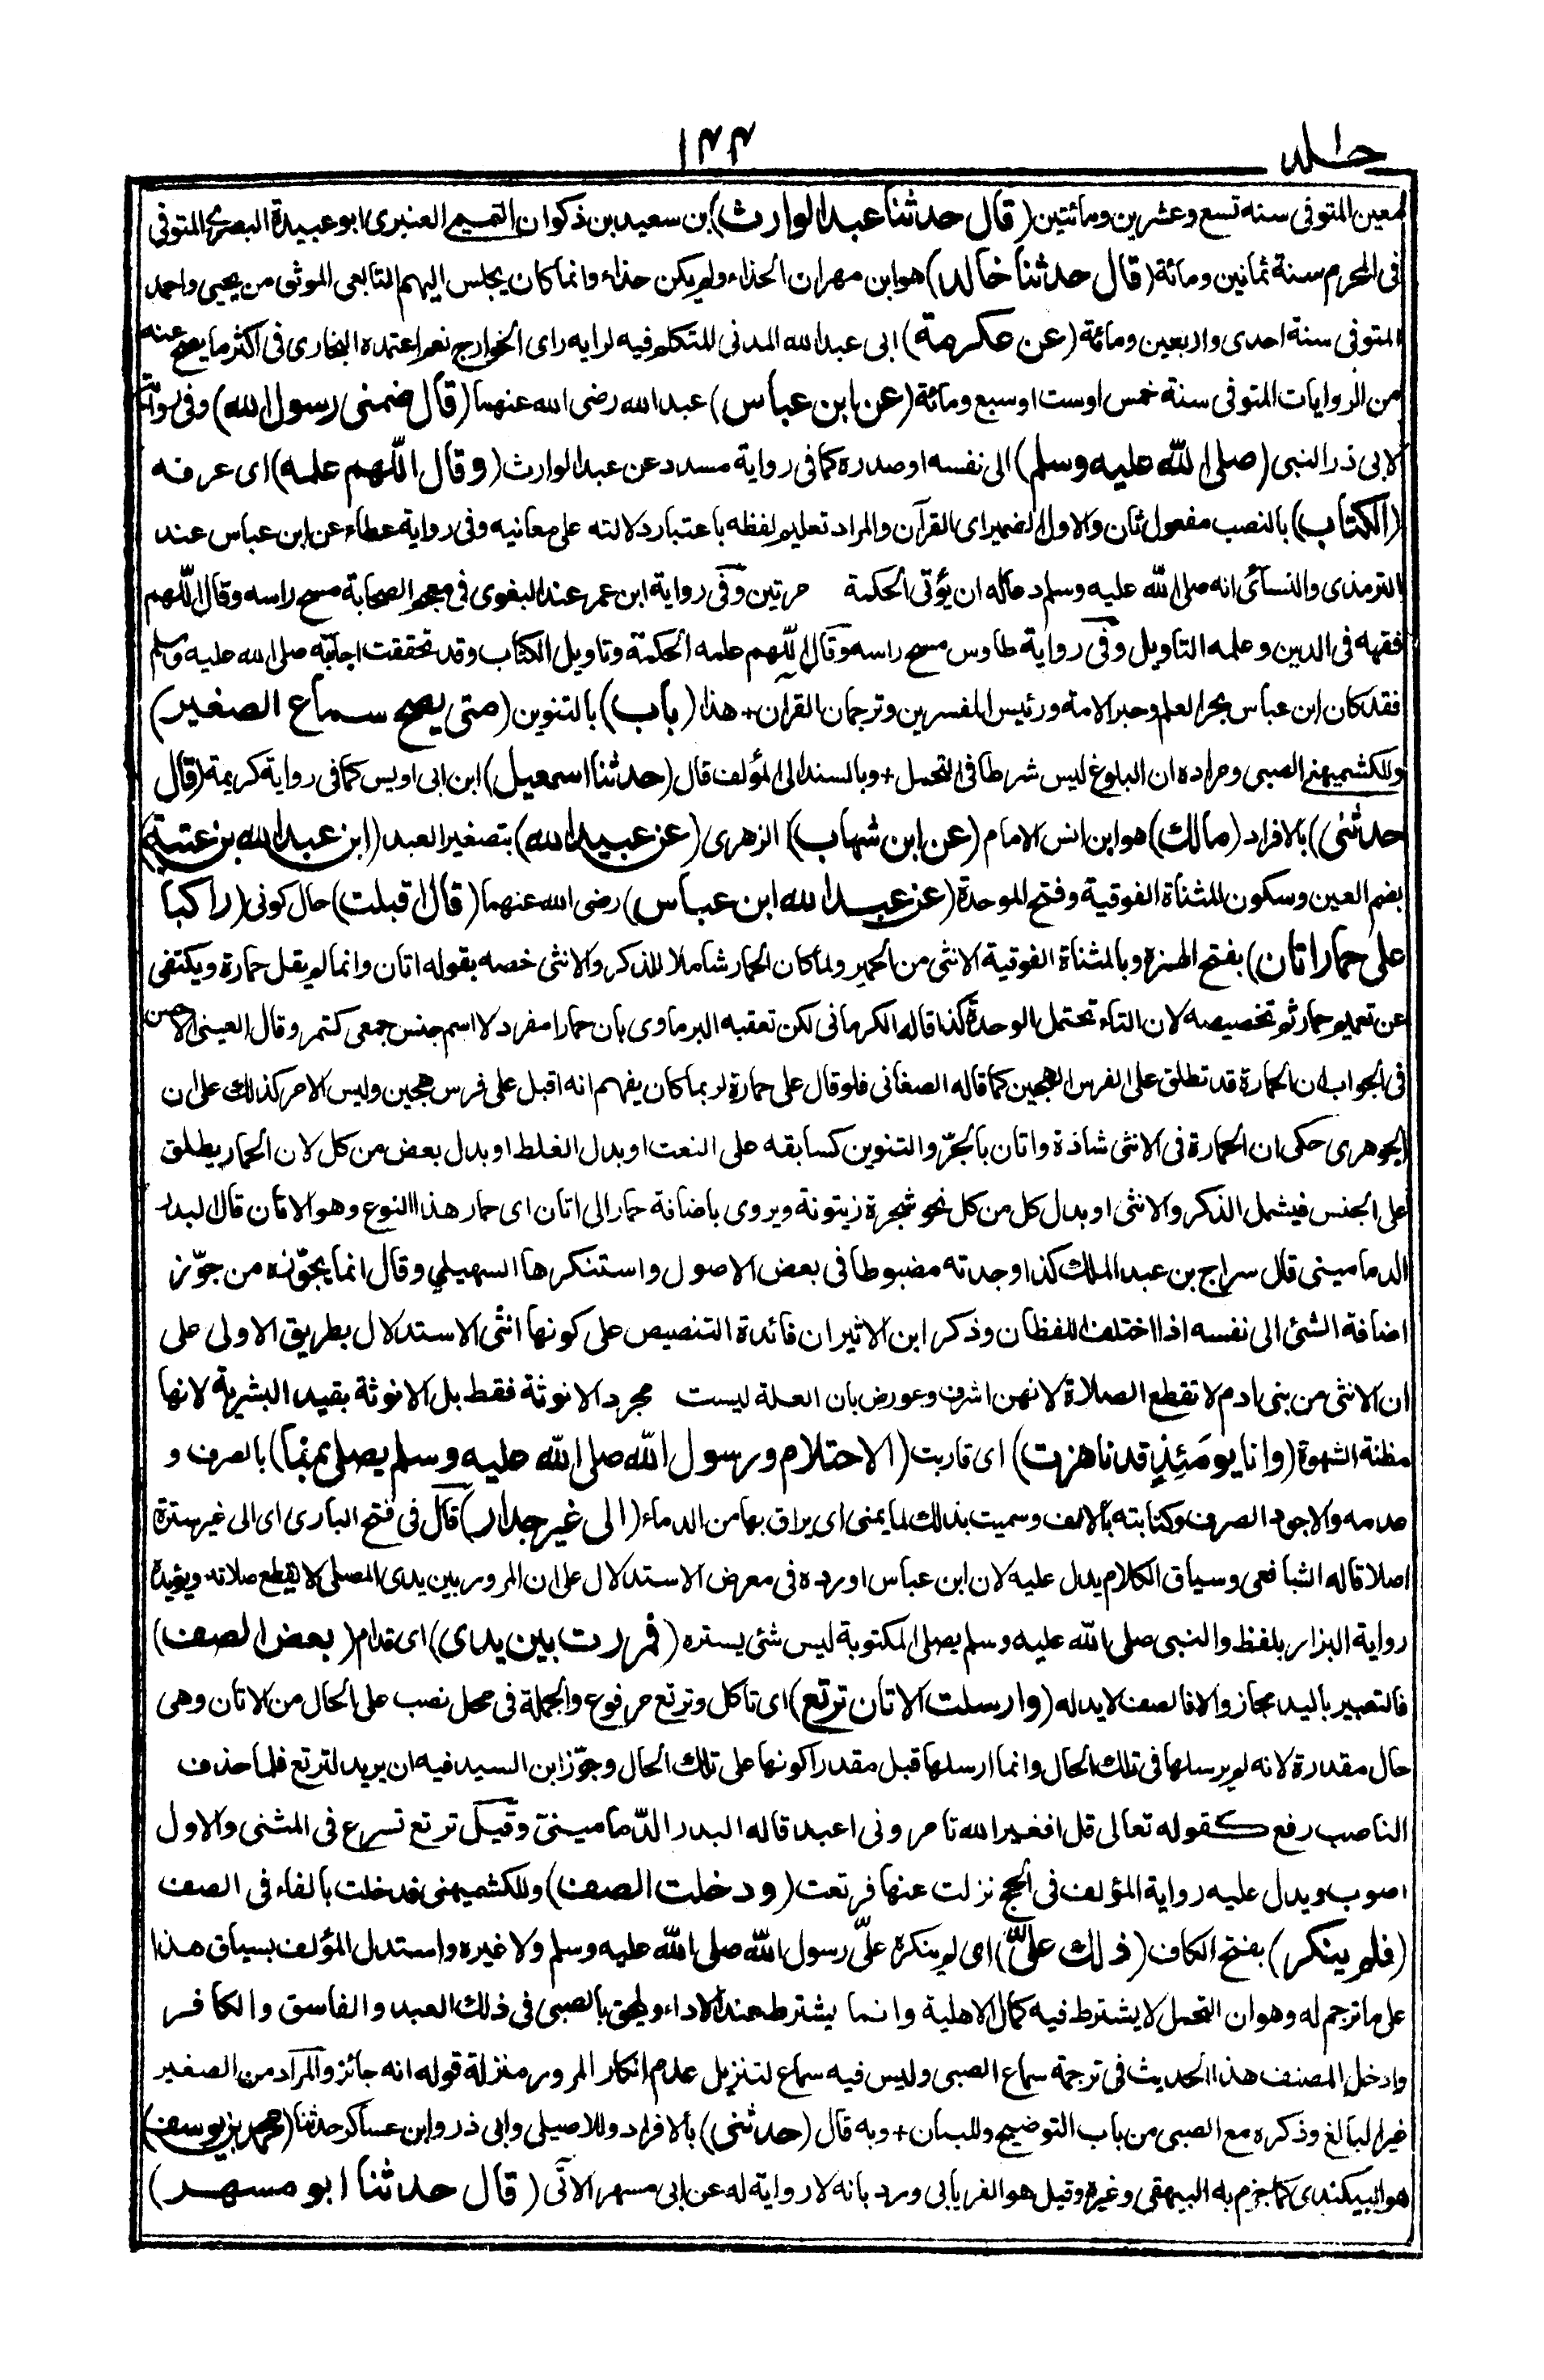 جلد ۱ ۱۴۴
معين المتوفى سنه تسع وعشرين ومائتين (قال حدثنا عبد الوارث) ابن سعيد بن ذكوان التميمي العنبري ابو عبيدة البصري المتوفى
فى المحرم سنة ثمانين ومائة (قال حدثنا خالد) هو ابن مهران الحذاء ولم يكن حذاء وانما كان يجلس اليهم التابعى الموثق من يحيى واحمد
المتوفى سنة احدى واربعين ومائة (عن عكرمة) ابى عبد الله المدنى المتكلم فيه لرايه راى الخوارج نعم اعتمده البخارى فى اكثر ما يصح عنه
من الروايات المتوفى سنة خمس اوست اوسبع ومائة (عن ابن عباس) عبد الله رضى الله عنهما (قال ضمنى رسول الله) وفى رواية
لابى ذر النبى (صلى الله عليه وسلم) الى نفسه او صدره كما فى رواية مسدد عن عبد الوارث (وقال اللهم علمه) اى عرفه
(الكتاب) بالنصب مفعول ثان والاول الضمير اى القرآن والمراد تعليم لفظه باعتبار دلالته على معانيه وفى رواية عطاء عن ابن عباس عند
الترمذى والنسائى انه صلى الله عليه وسلم دعا له ان يؤتى الحكمة مرتين وفى رواية ابن عمر عند البغوى فى معجم الصحابة مسح راسه وقال اللهم
فقهه فى الدين وعلمه التاويل وفى رواية طاوس مسح راسه وقال اللهم علمه الحكمة وتاويل الكتاب وقد تحققت اجابته صلى الله عليه وسلم
فقد كان ابن عباس بحر العلم وحبر الامة ورئيس المفسرين وترجمان القرآن + هذا (باب) بالتنوين (متى يصح سماع الصغير)
وللكشميهنى الصبى ومراده ان البلوغ ليس شرطا فى التحمل + وبالسند الى المؤلف قال (حدثنا اسمعيل) ابن ابى اويس كما فى رواية كريمة (قال
حدثنى) بالافراد (مالك) هو ابن انس الامام (عن ابن شهاب) الزهرى (عن عبيد الله) بتصغير العبد (ابن عبد الله بن عتبة)
بضم العين وسكون المثناة الفوقية وفتح الموحدة (عن عبد الله ابن عباس) رضى الله عنهما (قال اقبلت) حال كونى (راكبا
على حمار اتان) بفتح الهمزة وبالمثناة الفوقية الانثى من الحمير ولما كان الحمار شاملا للذكر والانثى خصه بقوله اتان وانما لم يقل حمارة ويكتفى
عن تعميم حمار ثم تخصيصه لان التاء تحتمل الوحدة كذا قاله الكرمانى لكن تعقبه البرماوى بان حمارا مفرد لا اسم جنس جمعى كتمر وقال العينى الاحسن
فى الجواب ان الحمارة قد تطلق على الفرس الهجين كما قاله الصغانى فلو قال على حمارة لربما كان يفهم انه اقبل على فرس هجين وليس الامر كذلك على ان
الجوهرى حكى ان الحمارة فى الانثى شاذة واتان بالجرّ والتنوين كسابقه على النعت او بدل الغلط او بدل بعض من كل لان الحمار يطلق
على الجنس فيشمل الذكر والانثى او بدل كل من كل نحو شجرة زيتونة ويروى باضافة حمار الى اتان اى حمار هذا النوع وهو الاتان قال البدر
الدمامينى قال سراج بن عبد الملك كذا وجدته مضبوطا فى بعض الاصول واستنكرها السهيلي وقال انما يجوّزه من جوّز
اضافة الشئ الى نفسه اذا اختلف اللفظان وذكر ابن الاثير ان فائدة التنصيص على كونها انثى الاستدلال بطريق الاولى على
ان الانثى من بنى ادم لا تقطع الصلاة لانهن اشرف وعورض بان العلة ليست مجرد الانوثة فقط بل الانوثة بقيد البشرية لانها
مظنة الشهوة (وانا يومئذٍ قد ناهزت) اى قاربت (الاحتلام ورسول الله صلى الله عليه وسلم يصلى بمنًا) بالصرف و
عدمه والاجود الصرف وكتابته بالالف وسميت بذلك لما يمنى اى يراق بها من الدماء (الى غير جدار) قال فى فتح البارى اى الى غير سترة
اصلا قاله الشافعى وسياق الكلام يدل عليه لان ابن عباس اورده فى معرض الاستدلال على ان المرور بين يدى المصلى لا يقطع صلاته ويؤيده
رواية البزار بلفظ والنبى صلى الله عليه وسلم يصلى المكتوبة ليس شئ يستره (فمررت بين يدى) اى قدام (بعض الصف)
فالتعبير باليد مجاز والا فالصف لا يد له (وارسلت الاتان ترتع) اى تاكل وترتع مرفوع والجملة فى محل نصب على الحال من الاتان وهى
حال مقدرة لانه لم يرسلها فى تلك الحال وانما ارسلها قبل مقدرا كونها على تلك الحال وجوّز ابن السيد فيه ان يريد لترتع فلما حذف
الناصب رفع كقوله تعالى قل افغير الله تامرونى اعبد قاله البدر الدّمامينىّ وقيل ترتع تسرع فى المشى والاول
اصوب ويدل عليه رواية المؤلف فى الحج نزلت عنها فرتعت (ودخلت الصف) وللكشميهنى فدخلت بالفاء فى الصف
(فلم ينكر) بفتح الكاف (ذلك علىّ) اى لم ينكره علىّ رسول الله صلى الله عليه وسلم ولا غيره واستدل المؤلف بسياق هذا
على ما ترجم له وهو ان التحمل لا يشترط فيه كمال الاهلية وانما يشترط عند الاداء ويلحق بالصبى فى ذلك العبد والفاسق والكافر
وادخل المصنف هذا الحديث فى ترجمة سماع الصبى وليس فيه سماع لتنزيل عدم انكار المرور منزلة قوله انه جائز والمراد من الصغير
غير البالغ وذكره مع الصبى من باب التوضيح والبيان + وبه قال (حدثنى) بالافراد وللاصيلى وابى ذر وابن عساكر حدثنا (محمد بن يوسف)
هو البيكندى كما جزم به البيهقى وغيره وقيل هو الفريابى ورد بانه لا رواية له عن ابى مسهر الآتى (قال حدثنا ابو مسهر)